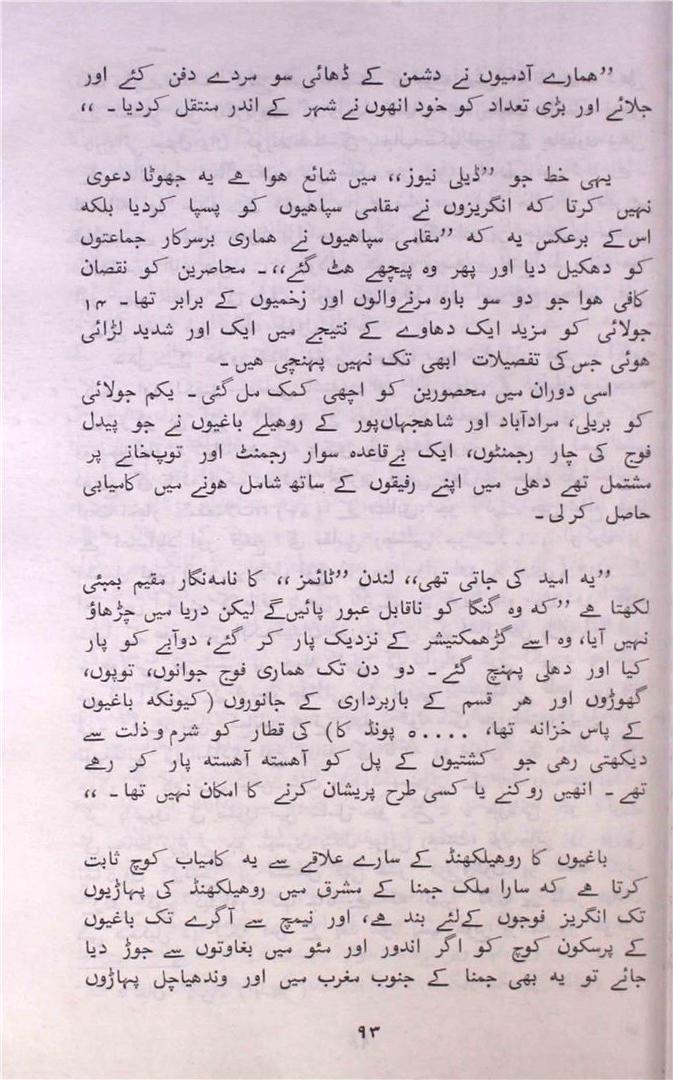 ”همارے آدمیوں نے دشمن کے ڈھائی سو مردے دفن کئے اور
جلائے اور بڑی تعداد کو خود انھوں نے شہر کے اندر منتقل کردیا۔،،
یہی خط جو ”ڈیلی نیوز،، میں شائع ہوا ہے یہ جھوٹا دعوی
نہیں کرتا کہ انگریزوں نے مقامی سپاہیوں کو پسپا کردیا بلکہ
اس کے برعکس یہ کہ ”مقامی سپاہیوں نے ہماری برسرکار جماعتوں
کو دھکیل دیا اور پھر وہ پیچھے ہٹ گئے،،۔ محاصرین کو نقصان
کافی ہوا جو دو سو بارہ مرنے والوں اور زخمیوں کے برابر تھا۔ ۱۴
جولائی کو مزید ایک دھاوے کے نتیجے میں ایک اور شدید لڑائی
ہوئی جس کی تفصیلات ابھی تک نہیں پہنچی ہیں۔
اسی دوران میں محصورین کو اچھی کمک مل گئی۔ یکم جولائی
کو بریلی، مرادآباد اور شاہجہاں پور کے روہیلے باغیوں نے جو پیدل
فوج کی چار رجمنٹوں، ایک بے قاعدہ سوار رجمنٹ اور توپ خانے پر
مشتمل تھے دہلی میں اپنے رفیقوں کے ساتھ شامل ہونے میں کامیابی
حاصل کر لی۔
”یہ امید کی جاتی تھی،، لندن ”ٹائمز،، کا نامہ نگار مقیم بمبئی
لکھتا ہے ”کہ وہ گنگا کو ناقابل عبور پائیں گے لیکن دریا میں چڑھاؤ
نہیں آیا، وہ اسے گڑھمکتیشر کے نزدیک پار کر گئے، دوآبے کو پار
کیا اور دہلی پہنچ گئے۔ دو دن تک ہماری فوج جوانوں، توپوں،
گھوڑوں اور ہر قسم کے باربرداری کے جانوروں (کیونکہ باغیوں
کے پاس خزانہ تھا، ۵۰۰۰۰ پونڈ کا) کی قطار کو شرم و ذلت سے
دیکھتی رہی جو کشتیوں کے پل کو آہستہ آہستہ پار کر رہے
تھے۔ انھیں روکنے یا کسی طرح پریشان کرنے کا امکان نہیں تھا۔،،
باغیوں کا روہیلکھنڈ کے سارے علاقے سے یہ کامیاب کوچ ثابت
کرتا ہے کہ سارا ملک جمنا کے مشرق میں روہیلکھنڈ کی پہاڑیوں
تک انگریز فوجوں کے لئے بند ہے، اور نیمچ سے آگرے تک باغیوں
کے پرسکون کوچ کو اگر اندور اور مئو میں بغاوتوں سے جوڑ دیا
جائے تو یہ بھی جمنا کے جنوب مغرب میں اور وندھیاچل پہاڑوں
۹۳